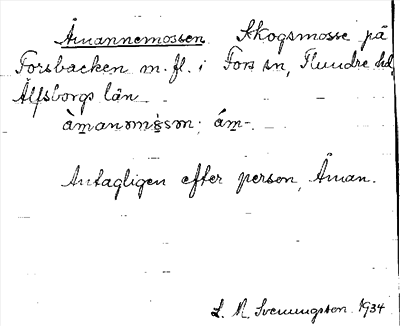 Åmannemossen Skogsmosse på
Forsbacken m.fl. i Fors sn, Flundre hd,
Älfsborgs län
Antagligen efter person, Åman.
L. N. Svenungsson 1934